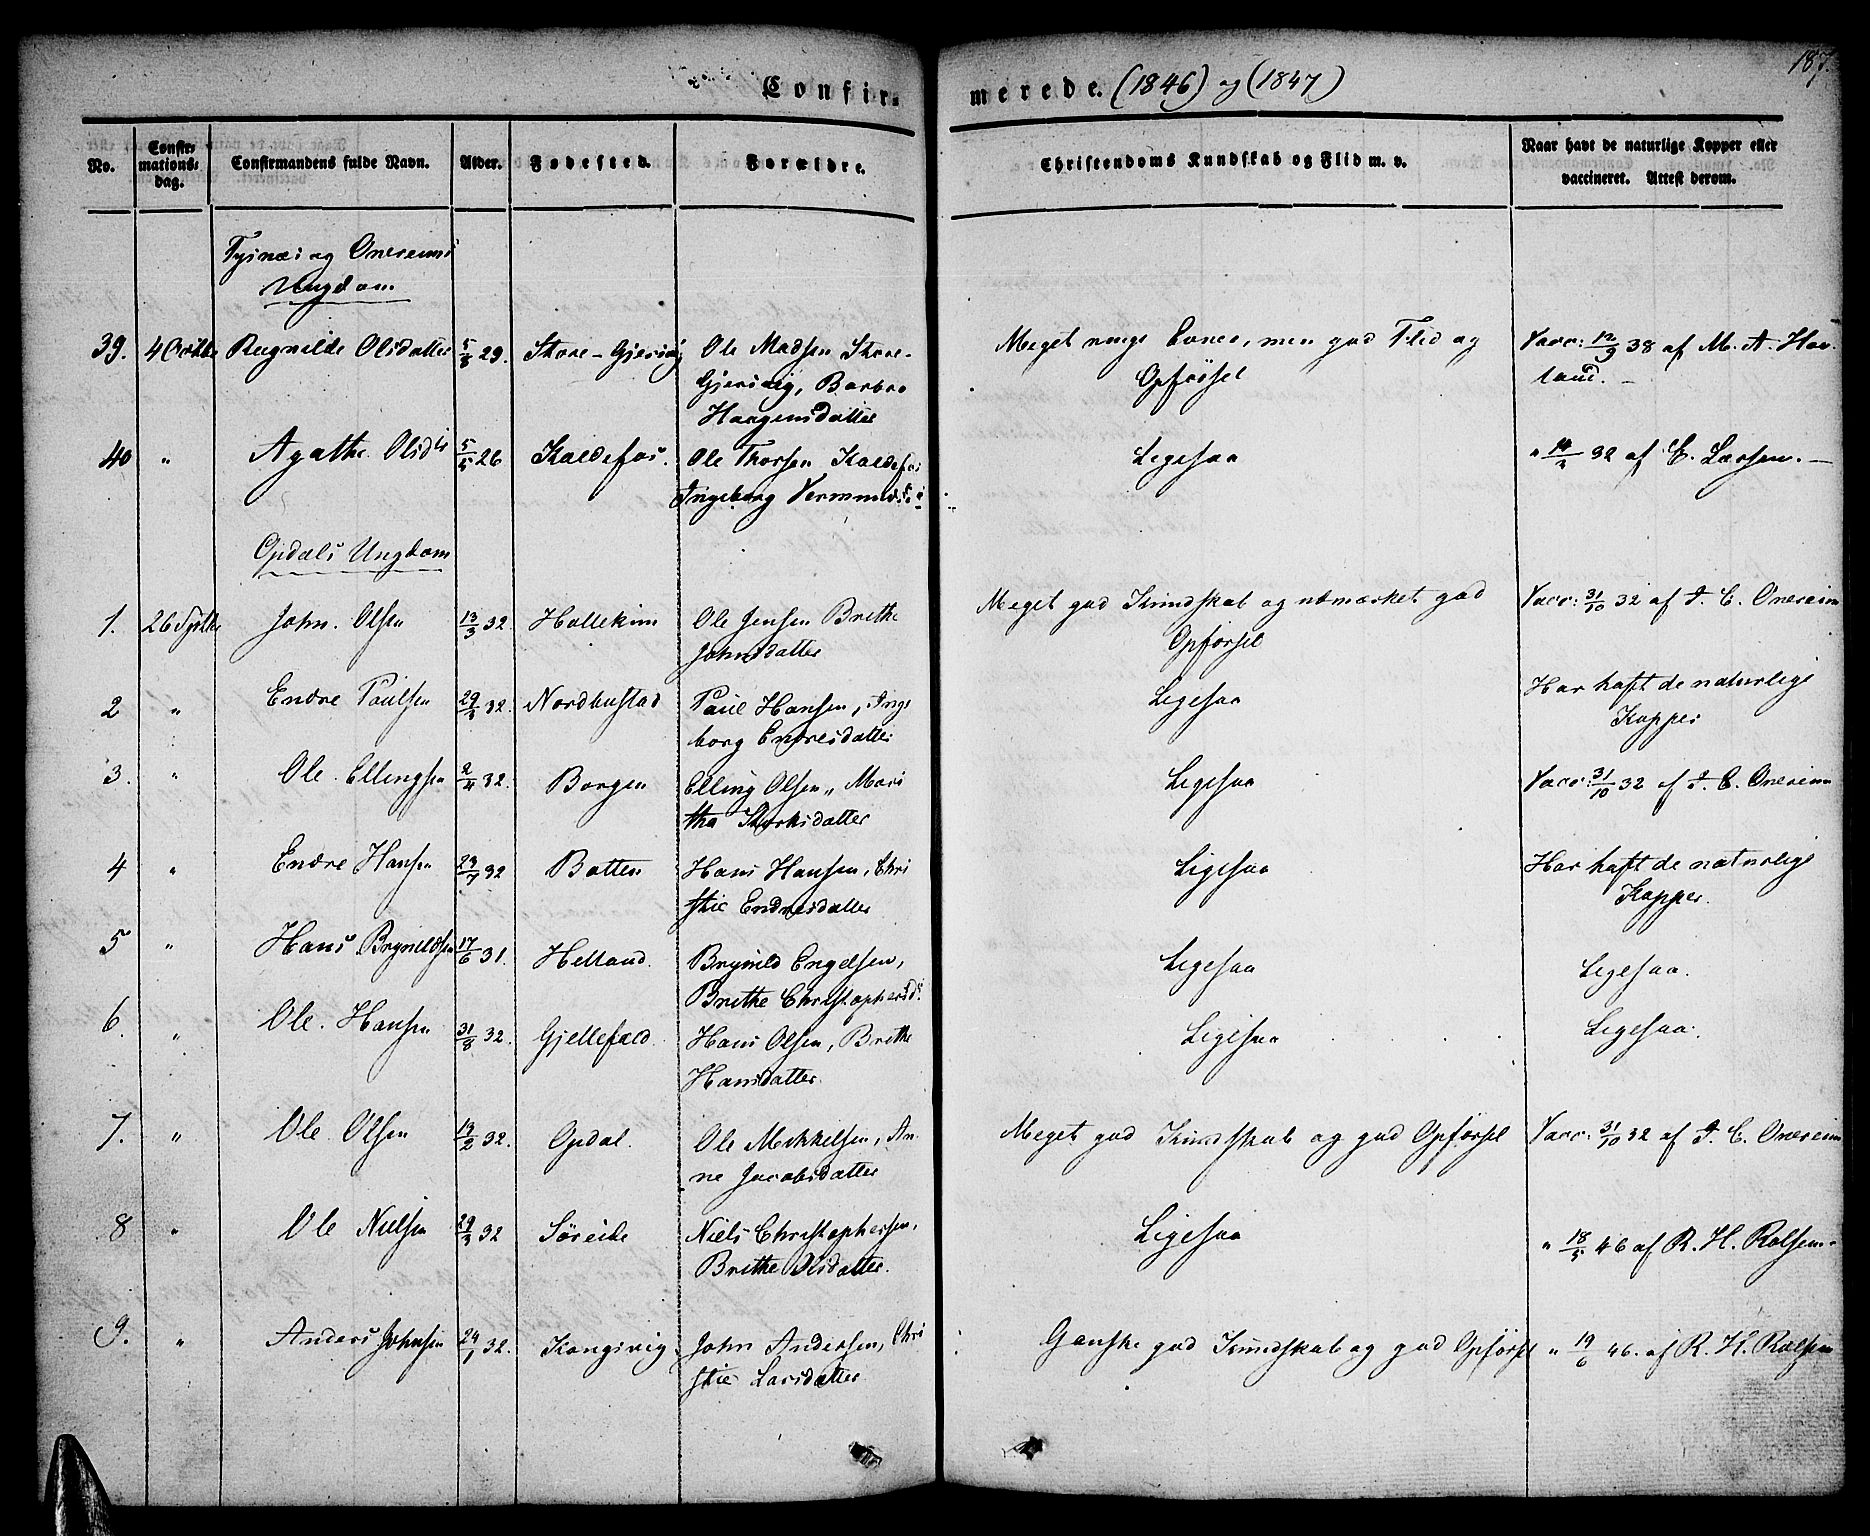 187.
Confir- merede. (1846) og (1847)
No. Confir-mations-dag. Confirmandens fulde Navn. Alder. Fødested. Forældre. Christendoms Kundskab og Flid m. v. Naar havt de naturlige Kopper eller vaccineret. Attest derom.
Tysnæs og Onereims
Ungdom
39. 4 Octbr Ragnilde Olsdatter 29. Store-Gjersvig Ole Madsen Store- Meget ringe Evner, men god Flid og Vacc: 12/9 38 af M. A. Hov-
Gjersvig, Barbro Opførsel land. -
Haagensdatter
40 " Agathe Olsdtr 5/5 26 Kaldefos. Ole Thorsen Kaldefos Ligesaa " 32 af E. Larsen. -
Ingeborg
Opdals Ungdom
1. 26 Septbr John. Olsen 13/3 32. Hollekim Ole Jensen Brithe Meget god Kundskab og udmærket god Vacc: 31/10 32 af I. C. Onereim
Johnsdatter Opførsel
2 " Endre Paulsen 29/3 32. Nordhustad Paul Hansen, Inge Ligesaa Har haft de naturlige
borg Endresdatter Kopper
3. " Ole. Ellingsen 2/4 32. Borgen Elling Olsen, Mari Ligesaa Vacc: 31/10 32 af I. C. Onereim
tha Størksdatter
4 " Endre Hansen 32 Botten Hans Hansen, Chri Ligesaa Har haft de naturlige
stie Endresdatter Kopper.
5 " Hans Brynildsen 17/6 31. Helland. Brynild Engelsen, Ligesaa Ligesaa.
Brithe Christophersd.
6. " Ole. Hansen 31/8 32. Gjellefald. Hans Olsen, Brithe Ligesaa Ligesaa.
Hansdatter.
7. " Ole Olsen 13/2 32. Opdal. Ole Mikkelsen, An- Meget god Kundskab og god Opførsel Vacc: 31/10 32 af I. C. Onereim
ne Jacobsdatter
8 " Ole Nielsen 29/3 32 Søreide Niels Christophersen, Ligesaa " 18/5 46 af R. H. Rolsen.
Brithe Olsdatter.
9. " Anders Johnsen 24/1 32. Kongsvig John Andersen, Chri Ganske god Kundskab og god Opførsel " 19/6 46. af R. H. Rolsen
stie Larsdatter